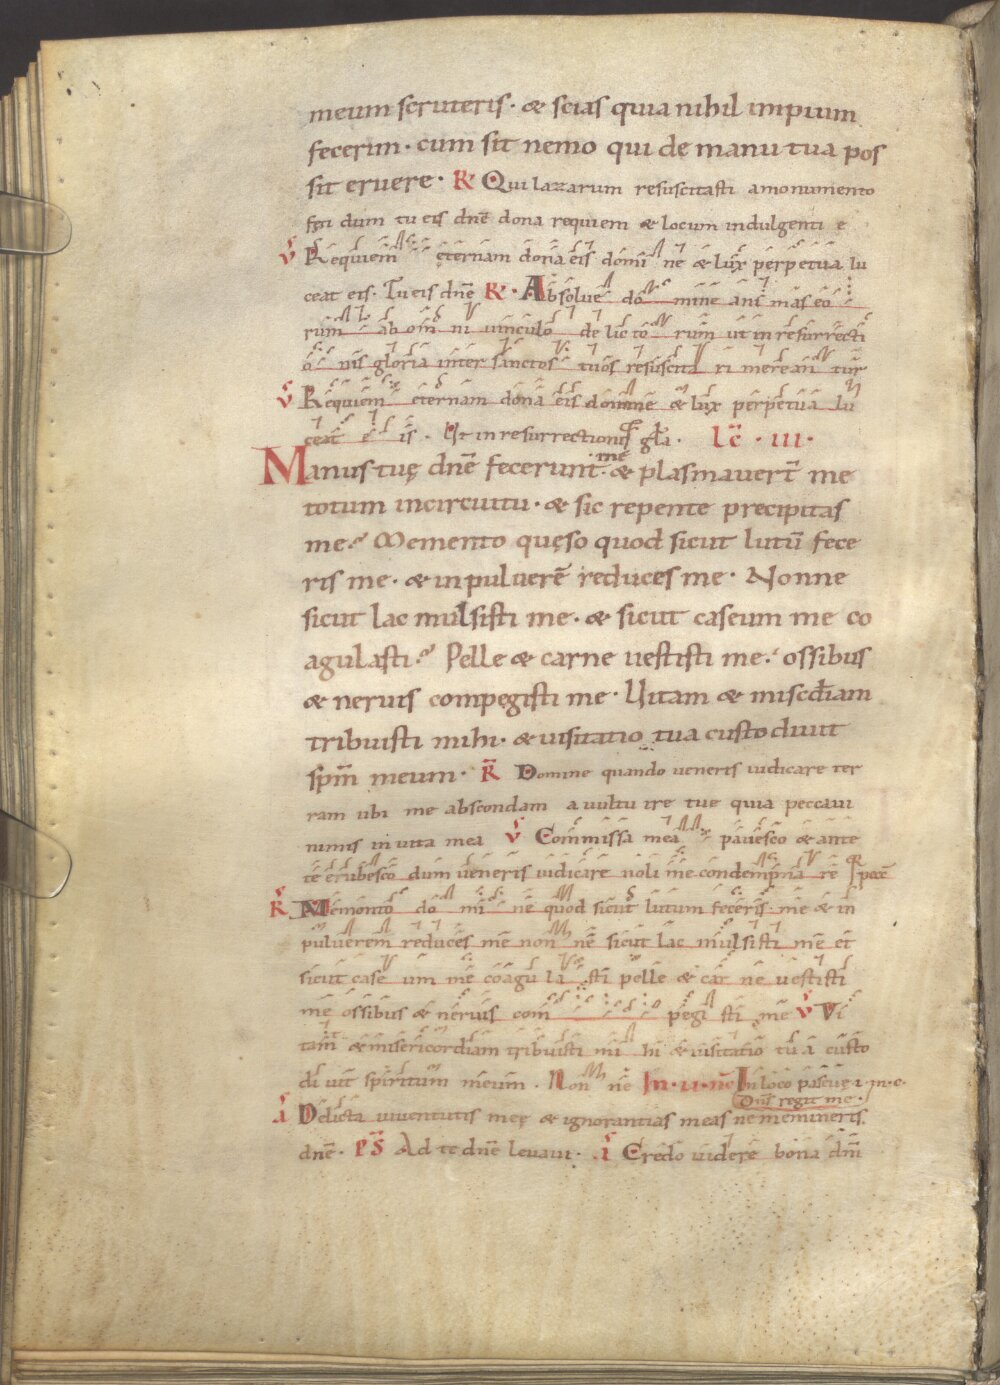 meum scruteris · & scias quia nihil impium
fecerim · cum sit nemo qui de manu tua pos
sit eruere · R Qui lazarum resuscitasti a monumento
dum tu eis dnē dona requiem & locum indulgenti e
V Requiem ęternam dona eis domi ne & lux perpetua lu
ceat eis · Tu eis dnē R · Absolue do mine ani mas eo
rum ab omni uinculo de lic to rum ut in resurrecti
o nis gloria inter sanctos tuos resuscita ri mere an tur
V Requiem ęternam dona eis domine & lux perpetua lu
ceat e is · Ut in resurrectionis gła · Lc̄ · III ·
Manus tuę dnē fecerunt me · & plasmauert̄ me
totum in circuitu · & sic repente precipitas
me · Memento quęso quod sicut lutū fece
ris me · & in puluerē reduces me · Nonne
sicut lac mulsisti me · & sicut caseum me co
agulasti · Pelle & carne uestisti me · ossibus
& neruis compęgisti me · Uitam & miscdiam
tribuisti mihi · & uisitatio tua custodiuit
spm̄ meum · R Domine quando ueneris iudicare ter
ram ubi me abscondam a uultu ire tue quia peccaui
nimis in uita mea V Commissa mea pauesco & ante
te erubesco dum ueneris iudicare noli me condempna re
R Memento do mi ne quod sicut lutum feceris me & in
puluerem reduces me non ne sicut lac mulsisti me et
sicut case um me coagu la sti pelle & car ne uestisti
me ossibus & neruis com pegi sti me V Vi
tam & misericordiam tribuisti mi hi & uisitatio tu a custo
di uit spiritum meum · Non ne In · II · nc̄ In loco pascuę i · m · c ·
Dns regit me ·
A Delicta iuuentutis meę & ignorantias meas ne memineris
dnē · Ps Ad te dnē leuaui · A Credo uidere bona dni